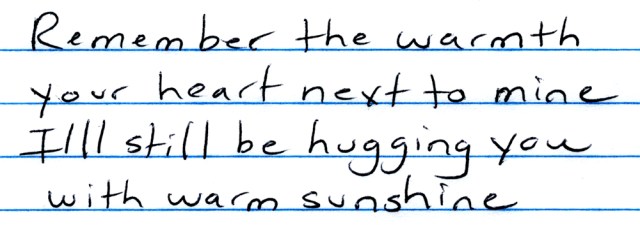 Remember the warmth
your heart next to mine
I'll still be hugging you
with warm sunshine